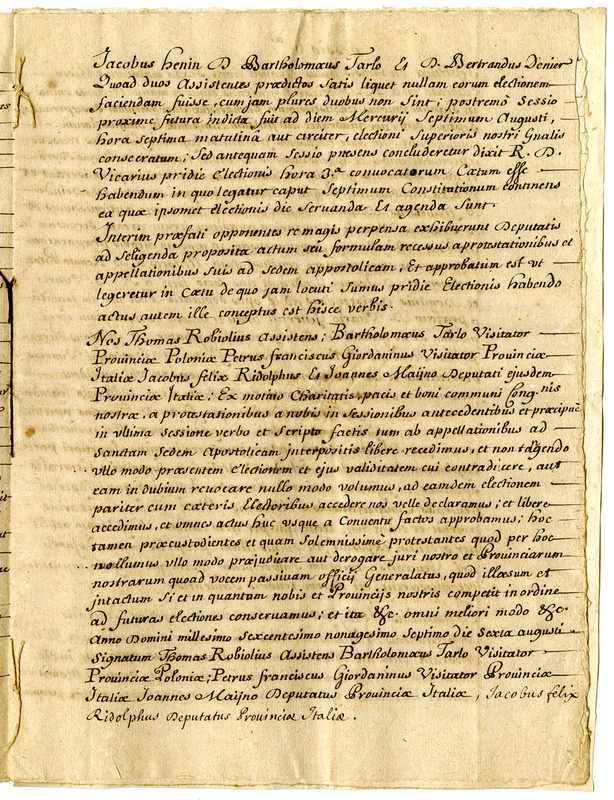 Jacobus henin D Bartholomæus Tarlo Et D. Bertrandus Denier
Quoad duos Assistentes prædictos satis liquet nullam eorum electionem
faciendam fuisse, cum jam plures duobus non sint; postremo sessio
proxime futura indicta fuit ad diem Mercurij septimum Augusti,
hora septima matutina aut circiter, electioni superioris nostri Gnalis
consecratum; sed antequam sessio præsens concluderetur dixit R. D.
Vicarius pridie electionis hora 3.a convocatorum Cœtum esse
habendum in quo legatur caput septimum Constitutionum continens
ea quæ ipsomet electionis die servanda Et agenda sunt.
Interim præfati opponentes re magis perpensa exhibuerunt Deputatis
ad seligenda proposita actum seu formulam recessus a protestationibus et
appellationibus suis ad sedem appostolicam, Et approbatum est vt
legeretur in Cœtu de quo jam locuti sumus pridie Electionis habendo
actus autem ille conceptus est hisce verbis.
Nos Thomas Robiolius Assistens; Bartholomæus Tarlo Visitator
Provinciæ Poloniæ Petrus franciscus Giordaninus Visitator Provinciæ
Italiæ Jacobus felix Ridolphus Et Joannes Maijno Deputati ejusdem
Provinciæ Italiæ; Ex motivo Charitatis, pacis et boni communi Cong.nis
nostræ, a protestationibus a nobis in sessionibus antecedentibus et præcipuè
in vltima sessione verbo et scripto factis tum ab appellationibus ad
sanctam sedem Apostolicam jnterpositis libere recedimus, et non
vllo modo præsentem electionem et ejus validitatem cui contradicere, aut
eam in dubium revocare nullo modo volumus, ad eamdem electionem
pariter cum cæteris Electoribus accedere nos velle declaramus; et libere
accedimus, et omnes actus huc vsque a Conventu factos approbamus; hoc
tamen præcustodientes et quam solemnissimè protestantes quod per hoc
nollumus vllo modo præjudicare aut derogare juri nostro et Provinciarum
nostrarum quoad vocem passivam officij Generalatus, quod illæsum et
jntactum si et in quantum nobis et Provincijs nostris competit in ordine
ad futuras electiones conservamus; et ita &c. omni meliori modo &c.
Anno Domini millesimo sexcentesimo nonagesimo septimo die sexta augusti
signatum Thomas Robiolius Assistens Bartholomæus Tarlo Visitator
Provinciæ Poloniæ; Petrus franciscus Giordaninus Visitator Provinciæ
Italiæ Joannes Maijno Deputatus Provinciæ Italiæ, Jacobus felix
Ridolphus Deputatus Provinciæ Italiæ.